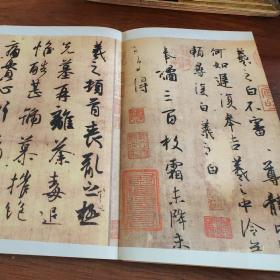 羲之白不審尊體
何如遲復奉告羲之中冷無
賴尋復白羲之白
奉橘三百枚霜未降未
可多得
羲之頓首喪亂之極
先墓再離荼毒追
惟酷甚號慕摧絕
痛貫心肝